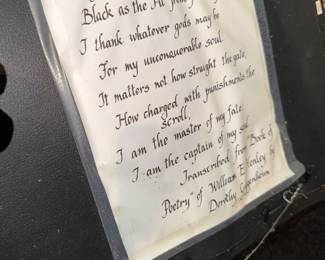 Black as the Pit from
I thank whatever gods may be
For my unconquerable soul.
It matters not how straight the gate,
How charged with punishments the
scroll,
I am the master of my fate
I am the captain of my soul
Transcribed from "Book of
Poetry" of William E. Henley by
Dorothy